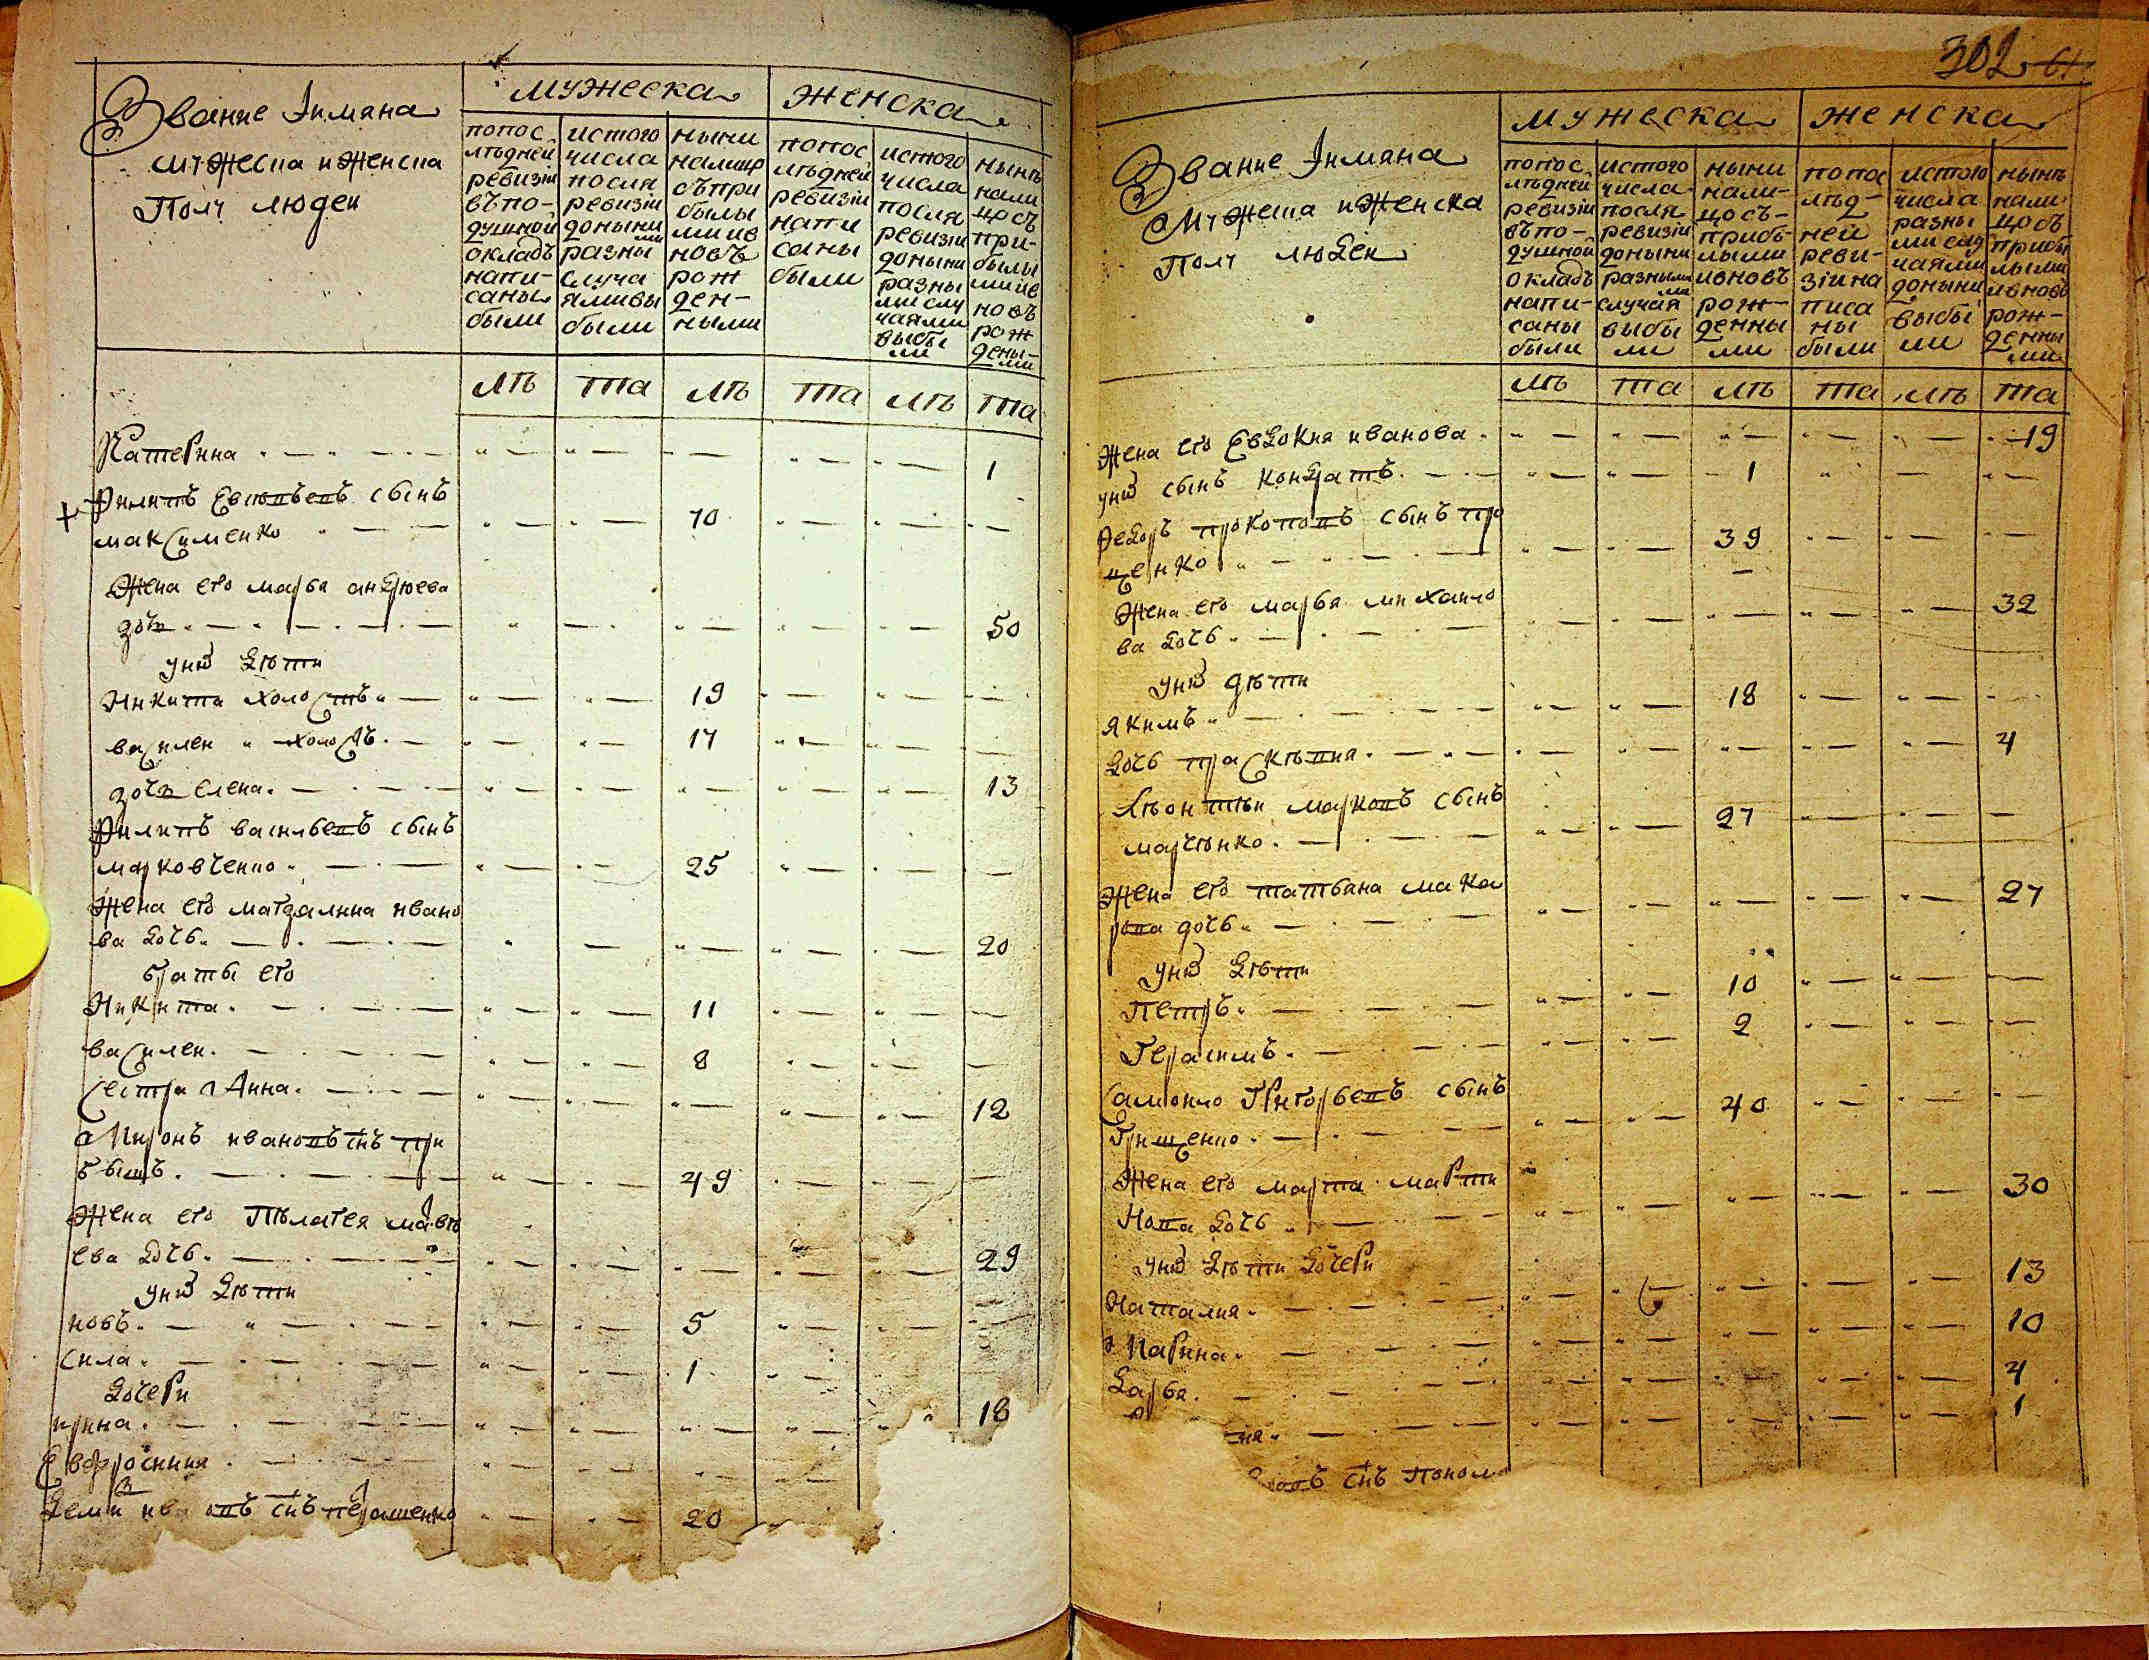 Звание Имяна
мужеска и Женска
Полу людеи
мужеска
женска
попос
лѣдней
ревизіи
въпо-
душной
окладъ
напи-
саны
были
истого
числа
посля
ревизіи
доныни
разны
ми
случа
ямивы
были
ныни
налицо
съпри
былы
миив
новъ
рож
ден-
ными
попос
лѣдней
ревизіи
напи
саны
были
истого
числа
посля
ревизіи
доныни
разны
мислу
чаями
выбы
ли
нынѣ
нали
цосъ
при-
былы
миив
новъ
рож
дены-
ми
лѣ та лѣ та лѣ та
Катерина 1
Филипъ Евсювъевъ сынъ
максименко 70
Жена его марья андрюева
дочь 50
унiх дѣти
Никита холостъ 19
василеи холостъ 17
дочь елена 13
Филипъ васильевъ сынъ
марковченко 25
Жена его магдалина ивано
ва дочь 20
браты его
Никита 11
василеи 8
сестра Анна 12
Миронъ ивановъ снъ при
бышъ 49
Жена его Пѣлагея матвѣ
ева дочь 29
унiх дѣти
иовъ 5
сила 1
дочери
ирина 18
Евфросиния
Деми ива овъ снъ пѣрашенко 20
302 61
Звание Имяна
Мужеска и Женска
Полу людеи
мужеска
женска
попос
лѣдней
ревизіи
въпо-
душной
окладъ
напи-
саны
были
истого
числа
посля
ревизіи
доныни
разными
случая
выбы
ли
ныни
нали-
цосъ-
прибъ-
лыми
ивновъ
рож-
денны
ми
попо
лѣд-
ней
реви-
зіина
писа
ны
были
истого
числа
разны
ми слу
чаями
доныни
выбы
ли
нынѣ
нали
цосъ
прибы
лыми
ивновъ
рож-
денны
ми
лѣ та лѣ та лѣ та
Жена его Евдокия иванова 19
унiх сынъ кондратъ 1
Федоръ прокоповъ сынъ про
ценко 39
Жена его марья михаило
ва дочь 32
унiх дѣти
якимъ 18
дочь праскѣвия 4
Лѣонтѣи марковъ сынъ
марченко 27
Жена его татьяна мака
рова дочь 27
унiх дѣти
Петръ 10
Герасимъ 2
Самоило Григорьевъ сынъ
Грищенко 40
Жена его марта марти
нова дочь 30
унiх дѣти дочери
Наталия 13
Марина 10
Дарья 4
ия 1
овъ снъ Поном